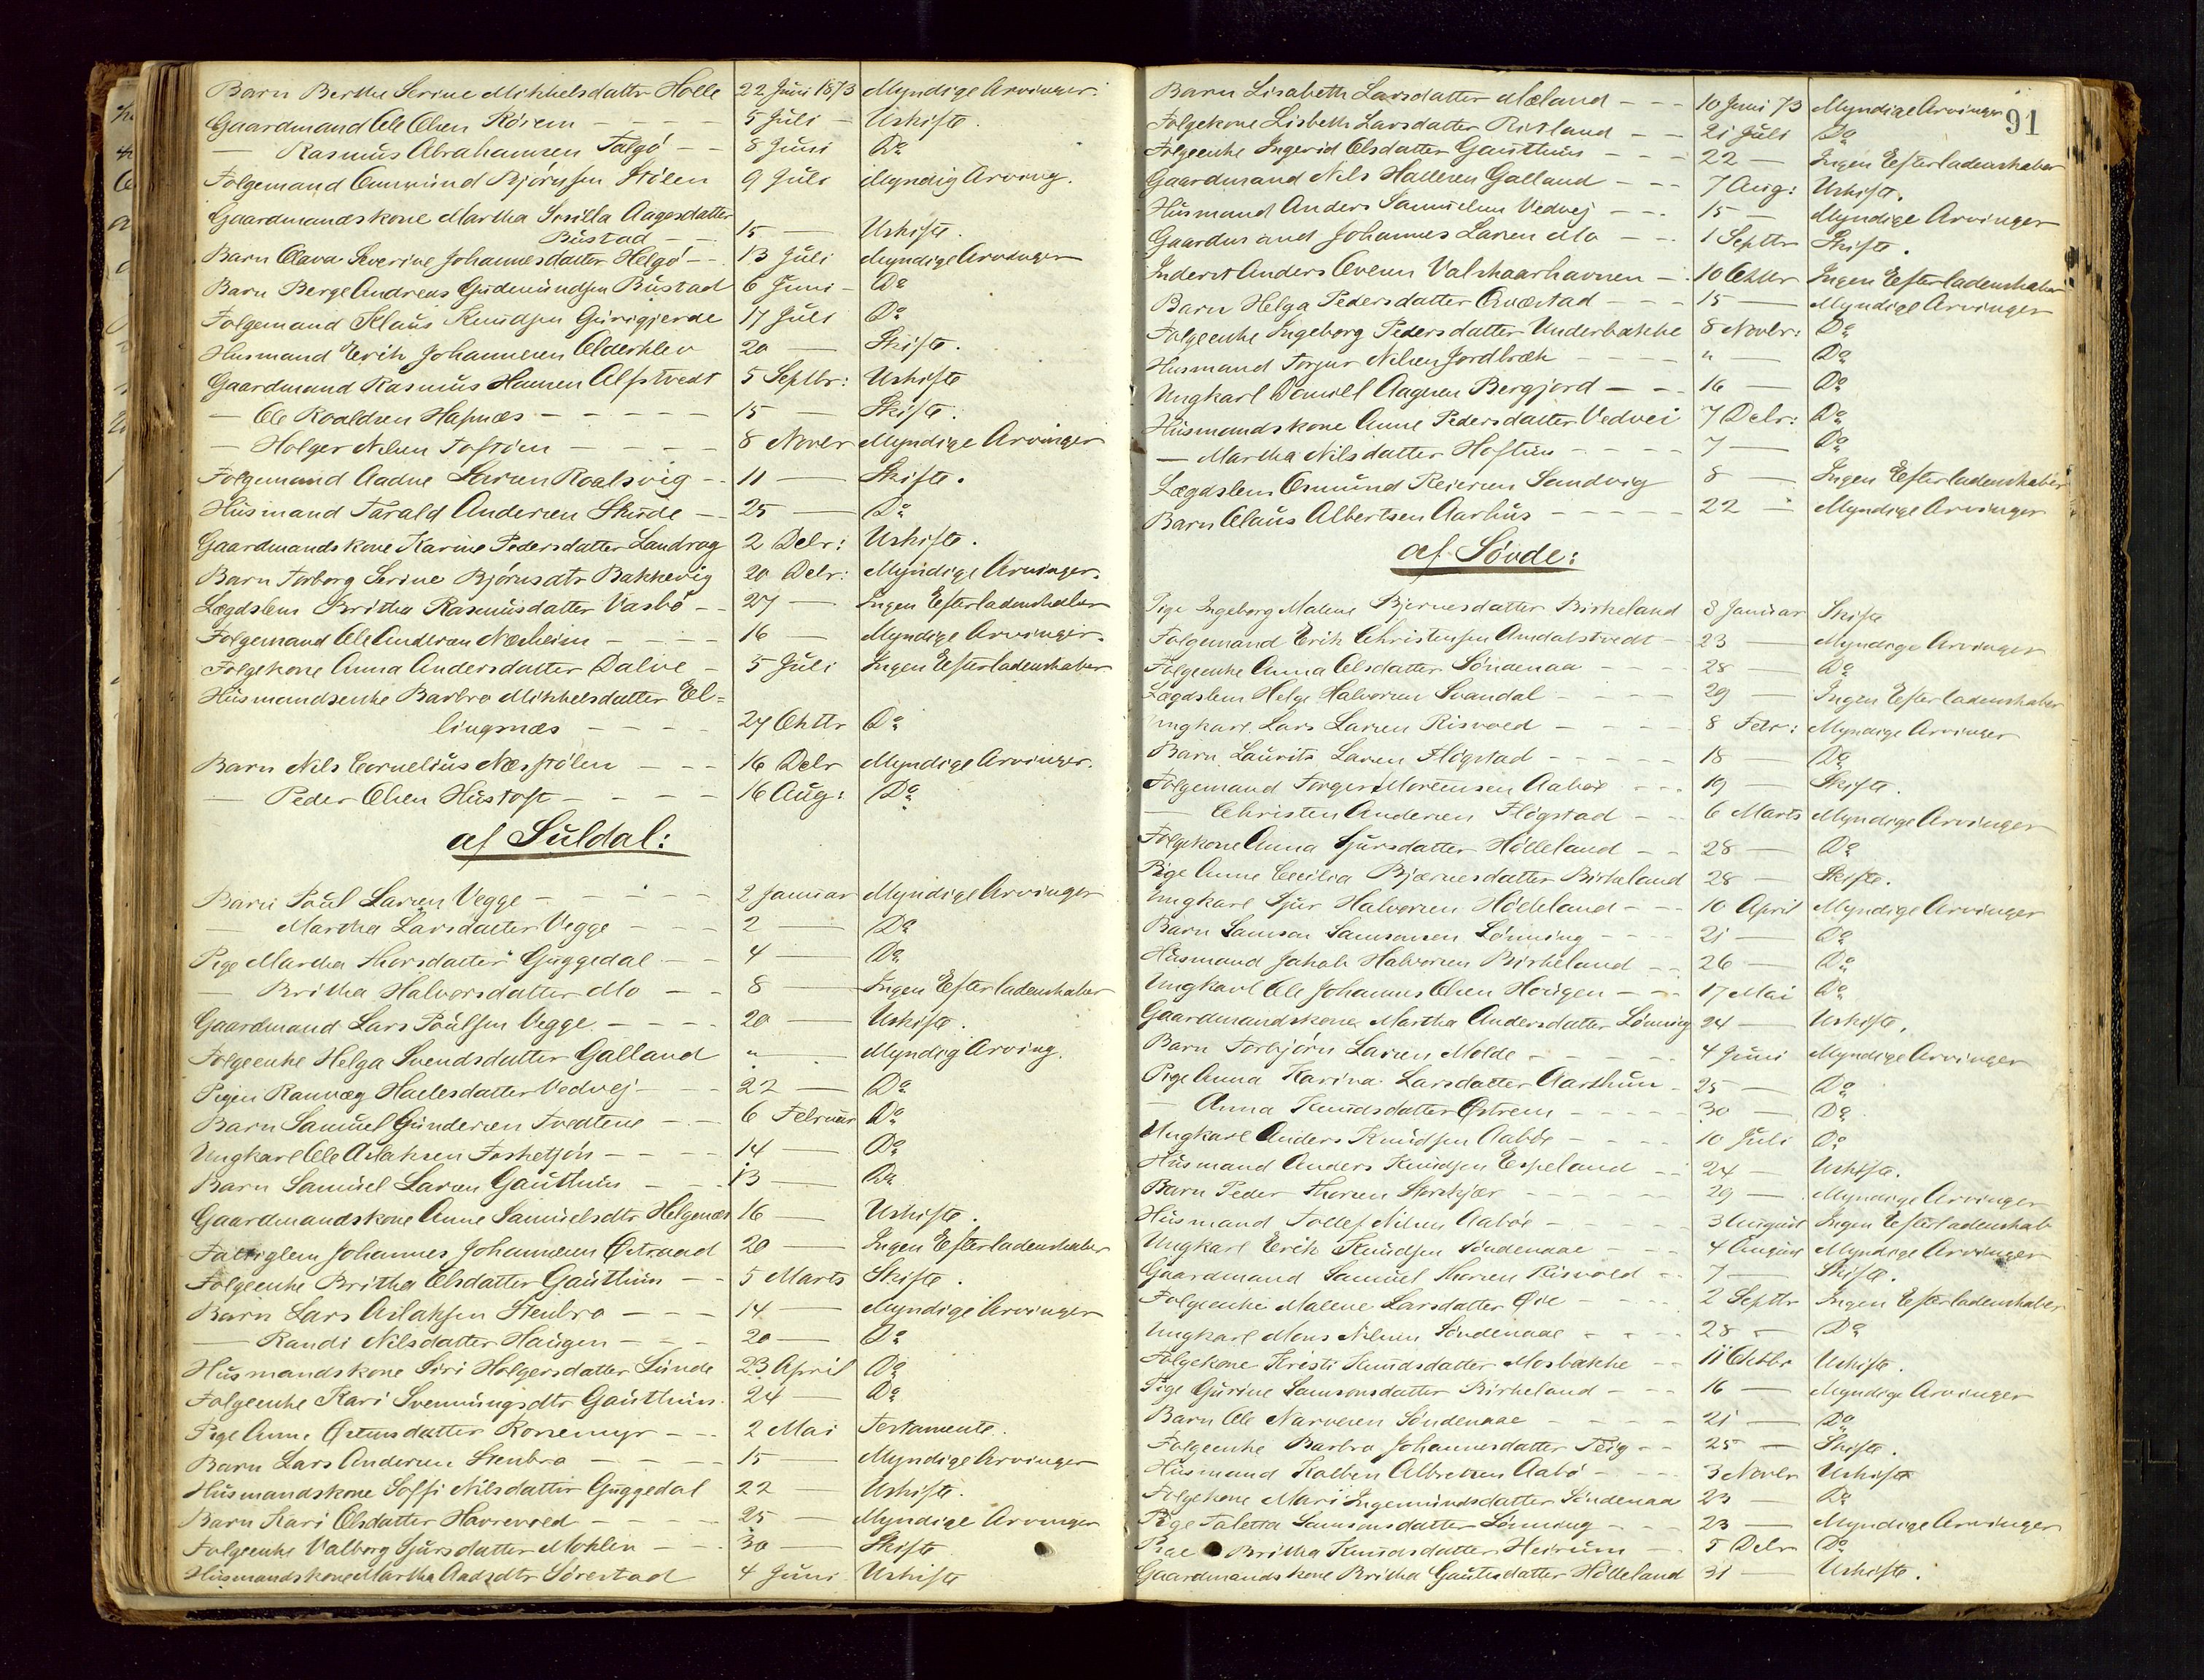 Barn Berthe Serine Mikkelsdatter Holle 22 Juni 1873 Myndige Arvinger.
Gaardmand Ole Olsen Rörem - - - - 5 Juli - Uskifte.
— Rasmus Abrahamsen Talgö - - 8 Juni Do
Folgemand Osmund Bjornsen Stölen 9 Juli Myndig Arving.
Gaardmandskone Martha Sisilla Aagesdatter
Bustad - - 15 — Uskifte.
Barn Olava Severine Johannesdatter Helgö - - 13 Juli Myndige Arvinger
Barn Berge Andreas Gudmundsen Bustad 6 Juni - Do
Folgemand Klaus Knudsen Gurigjerde 17 Juli Do
Husmand Erik Johannesen Olderklev 20 — Skifte.
Gaardmand Rasmus Hansen Alfstvedt 5 Septbr: Uskifte
— Ole Roaldsen Hapnæs - - - - - 15 — Skifte.
— Holger Nilsen Toftöen - - - - 8 Novbr Myndige Arvinger
Folgemand Aadne Larsen Roalsvig - - 11 — Skifte.
Husmand Tarald Andersen Skude - 25 — Do
Gaardmandskone Karine Pedersdatter Landrog 2 Debr: Uskifte.
Barn Torborg Serine Björnsdtr Bakkevig 20 Debr: Myndige Arvinger.
Lægdslem Britha Rasmusdatter Vasbö - - 27 — Ingen Efterladenskaber
Folgemand Ole Andersen Næsheim - - - - 16 — Myndige Arvinger.
Folgekone Anna Andersdatter Dalve - 5 Juli Ingen Efterladenskaber
Husmandsenke Barbro Mikkelsdatter El=
lingsnæs - - - - 27 Oktbr Do
Barn Nils Cornelius Næsstölen - - - 16 Debr Myndige Arvinger.
— Peder Olsen Hustoft - - - - 16 Aug: Do
af Suldal:
Barn Poul Larsen Vegge - - - - - 2 Januar Myndige Arvinger
— Martha Larsdatter Vegge - - - 2 — Do
Pige Martha Thorsdatter Guggedal - - 4 — Do
— Britha Halvorsdatter Mo - - 8 — Ingen Efterladenskaber
Gaardmand Lars Poulsen Vegge - - - - 20 — Uskifte.
Folgeenke Helga Svendsdatter Galland " . Myndig Arving.
Pigen Rannveg Hallesdatter Vedvej - - 22 — Do
Barn Samuel Gundersen Tvedtene - - - 6 Februar Do
Ungkarl Ole Aslaksen Fosketjön - - - - 14 — Do
Barn Samuel Larsen Gauthun - - - 13 — Do
Gaardmandskone Anne Samuelsdtr Helgenæs 16 — Uskifte.
Fattiglem Johannes Johannesen Östraad 20 — Ingen Efterladenskaber
Folgeenke Britha Olsdatter Gauthun - - 5 Marts Skifte.
Barn Lars Aslaksen Stenbro - - - 14 — Myndige Arvinger
— Randi Nilsdatter Haugen - - - 20 — Do
Husmandskone Siri Holgersdatter Lunde 23 April Do
Folgeenke Kari Svenningsdtr Gauthun. 24 — Do
Pige Anne Östensdatter Rossemyr - - - 2 Mai Testamente.
Barn Lars Andersen Stenbro - - - - 15 — Myndige Arvinger
Husmandskone Soffi Nilsdatter Guggedal 22 — Uskifte.
Barn Kari Olsdatter Havrevold - - - - 25 — Myndige Arvinger
Folgeenke Valborg Sjursdatter Moklev - - - 30 — Skifte
Husmandskone Martha Aadsdtr Sörestad 4 Juni Uskifte
91
Barn Lisabeth Larsdatter Mæland - - - 10 Juni 73 Myndige Arvinger
Folgekone Lisbeth Larsdatter Ritland - - 21 Juli Do
Folgeenke Ingerid Olsdatter Gauthun - - - 22 — Ingen Efterladenskaber
Gaardmand Nils Hallesen Galland - - - 7 Aug: Uskifte.
Husmand Anders Samuelsen Vedvej - - - 15 — Myndige Arvinger
Gaardmand Johannes Larsen Mo - - - 1 Septbr Skifte.
Inderst Anders Evensen Valskaarhavnen - 10 Oktbr Ingen Efterladenskaber
Barn Helga Pedersdatter Qværstad - - - 15 — Myndige Arvinger
Folgeenke Ingeborg Pedersdatter Underbakke 8 Novbr: Do
Husmand Torjus Nilsen Jordbræk - - - - " — Do
Ungkarl Daniel Aagesen Bergjord - - - 16 — Do
Husmandskone Anne Pedersdatter Vedvei 7 Debr: Do
— Martha Nilsdatter Hoftun - - - - 7 — Do
Lægdslem Osmund Reiersen Sandvig 8 — Ingen Efterladenskaber
Barn Olaus Albertsen Aarhus - - - - - 22 — Myndige Arvinger
af Sövde:
Pige Ingeborg Malene Bjernesdatter Birkeland 3 Januar Skifte
Folgemand Erik Christensen Amdalstvedt - 23 — Myndige Arvinger
Folgeenke Anna Olsdatter Söndenaa - - - - 28 — Do
Lægdslem Helge Halvorsen Svandal - - - - 29 — Ingen Efterladenskaber
Ungkarl Lars Larsen Risvold - - - - 8 Febr: Myndige Arvinger
Barn Laurits Larsen Flögstad - - - - - 18 — Do
Folgemand Torger Mortensen Aaböe - - - 19 — Skifte.
— Christen Andersen Flögstad - - 6 Marts Myndige Arvinger
Folgekone Anna Sjursdatter Hölleland - - 28 — Do
Pige Anne Cecilia Bjærnesdatter Birkeland 28 — Skifte.
Ungkarl Sjur Halvorsen Hölleland - - - 10 April Myndige Arvinger
Barn Samson Samsonsen Lönning - - - - 21 — Do
Husmand Jakob Halvorsen Birkeland - - 26 — Do
Ungkarl Ole Johannes Olsen Hougen - - - 17 Mai Do
Gaardmandskone Martha Andersdatter Lönning 24 — Uskifte.
Barn Torbjörn Larsen Molde - - - - - 4 Juni Myndige Arvinger
Pige Anna Karina Larsdatter Aarthun - 25 — Do
— Anna Knudsdatter Östrem - - - - 30 — Do
Ungkarl Anders Knudsen Aaböe - - - - 10 Juli Do
Husmand Anders Knudsen Espeland - - 24 — Uskifte.
Barn Peder Thorsen Skorskjær - - - - - - 29 — Myndige Arvinger
Husmand Tollef Nilsen Aaböe - - - - - 3 August Ingen Efterladenskab
Ungkarl Erik Knudsen Söndenaae - - - 4 August Myndige Arvinger
Gaardmand Samuel Thorsen Risvold - - 7 — Skifte.
Folgeenke Malene Larsdatter Öie - - - - 2 Septbr Ingen Efterladenskaber
Ungkarl Mons Nilsen Söndenaae - - - 28 — Do
Folgekone Kristi Knudsdatter Mosbakke - - 11 Oktbr Uskifte.
Pige Gurine Samsonsdatter Birkeland - - - 16 — Myndige Arvinger
Barn Ole Narvesen Söndenaae - - - - 21 — Do
Folgeenke Barbra Johannesdatter Teig - - 25 — Skifte.
Husmand Kolben Albretsen Aabö - - - - 3 Novbr Uskifte
Folgekone Mari Ingemundsdatter Söndenaa 23 — Do
Pige Taletta Samsonsdatter Lönning - - - 23 — Myndige Arvinger
Pige Britha Knudsdatter Heirum - - 5 Debr Do
Gaardmandskone Britha Gautesdatter Hölleland 31 — Uskifte.